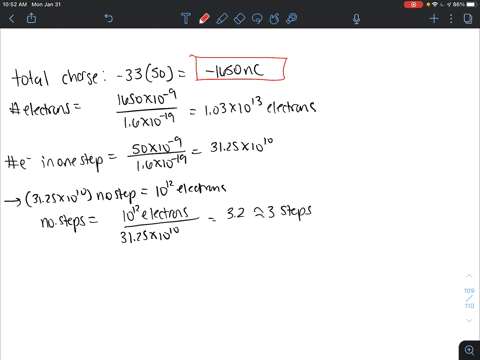 10:52 AM Mon Jan 31
86%
total charge: -33(50) = -1650nC
#electrons = 1650×10⁻⁹ / 1.6×10⁻¹⁹ = 1.03×10¹³ electrons
#e⁻ in one step = 50×10⁻⁹ / 1.6×10⁻¹⁹ = 31.25×10¹⁰
→ (31.25×10¹⁰) no step = 10¹² electrons
no. steps = 10¹² electrons / 31.25×10¹⁰ = 3.2 ≈ 3 steps
109
/
110